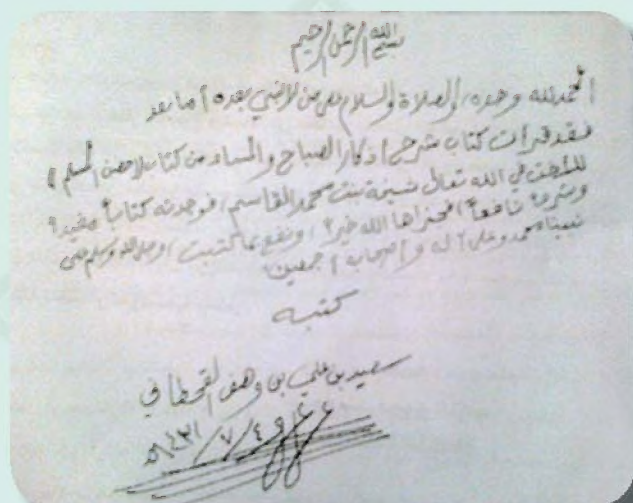 بسم الله الرحمن الرحيم
الحمد لله وحده، والصلاة والسلام على من لا نبي بعده أما بعد
فقد قرأت كتاب شرح أذكار الصباح والمساء من كتابي حصن المسلم
للأخت في الله تعالى نسيبة بنت محمد القاسم، فوجدته كتاباً مفيداً
وشرحاً نافعاً، فجزاها الله خيراً، ونفع بما كتبت، وصلى الله وسلم على
نبينا محمد وعلى آله وأصحابه أجمعين
كتبه
سعيد بن علي بن وهف القحطاني
١٤٣١/٧/٤هـ